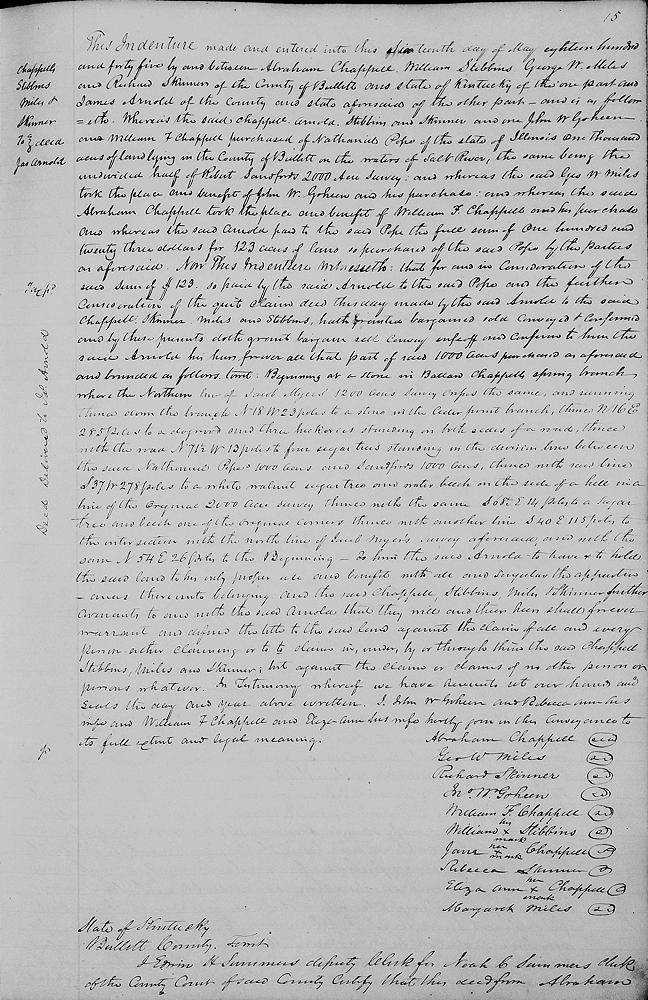 15
Chappell
Stibbins
Miles &
Skinner
To } deed
Jas Arnold
This Indenture made and entered into this teenth day of May eighteen hundred
and forty five by and between Abraham Chappell, William Stibbins George W. Miles
and Richard Skinner of the County of Bullitt and state of Kentucky of the one part and
James Arnold of the County and state aforesaid of the other part - and is as follow
=eth. Whereas the said Chappell, Arnold, Stibbins and Skinner and one John W Goheen
and William F Chappell purchased of Nathaniel Pope of the state of Illinois One thousand
acres of land lying in the County of Bullitt on the waters of Salt River, the same being the
undivided half of Robert Sandfords 2000 Acre Survey: and whereas the said Geo W Miles
took the place and benefit of John W. Goheen and his purchase: and whereas the said
Abraham Chappell took the place and benefit of William F. Chappell and his purchase
and whereas the said Arnold paid to the said Pope the full sum of One hundred and
twenty three dollars for 123 acres of land so purchased of the said Pope by the parties
as aforesaid. Now This Indenture Witnesseth: that for and in Consideration of the
said Sum of $123. so paid by the said Arnold to the said Pope and the further
Consideration of the quit Claim deed this day made by the said Arnold to the said
Chappell, Skinner, Miles and Stibbins, hath Granted bargained sold Conveyed & Confirmed
and by these presents doth grant bargain sell Convey enfeoff and Confirm to him the
said Arnold his heirs forever all that part of said 1000 Acres purchased as aforesaid
and bounded as follows. towit: Beginning at a stone in Ballard Chappells spring branch
where the Northern line of Jacob Myers 1200 acres survey crosses the same, and running
thence down the branch N 18 W 23 poles to a stone in the Cedar point branch, thence N 16 E
285 poles to a dogwood and three hickories standing on both sides of a road, thence
with the road N 71 E W 13 poles to four sugar trees standing in the division line between
the said Nathaniel Popes 1000 acres and Sandfords 1000 acres, thence with said line
S 37 W 278 poles to a white walnut sugar tree and water beech on the side of a hill in a
line of the original 2000 acre survey thence with the same S 68 E 14 poles to a sugar
tree and beech one of the original corners thence with another line S 40 E 115 poles to
the intersection with the north line of Jacob Myers survey aforesaid, and with the
same N 54 E 26 poles to the Beginning - To him the said Arnold to have & to hold
the said land to his only proper use and benefit with all and singular the appurten
=ances thereunto belonging. and the said Chappell, Stibbins, Miles & Skinner further
Covenants to and with the said Arnold that they will and their heirs shall forever
warrant and defend the title to the said land against the claim of all and every
person either claiming or to to claim in, under, by or through them the said Chappell
Stibbins, Miles and Skinner; but against the claim or claims of no other person or
persons whatever. In Testimony whereof we have hereunto set our hands and
Seals the day and year above written. I, John W Goheen and Rebecca ann his
wife and William F Chappell and Eliza ann his wife hereby join in this Conveyance to
its full extent and legal meaning.
Deed Delivered to Arnold
Abraham Chappell
Geo W Miles
Richard Skinner
Jno. W. Goheen
William F. Chappell
William his x mark Stibbins
Jane her x mark Chappell
Rebecca Skinner
Eliza Ann her x mark Chappell
Margaret Miles
State of Kentucky
Bullitt County. Towit
I Edwin H Summers deputy Clerk for Noah C Summers clerk
of the County Court of said County Certify that this deed from Abraham